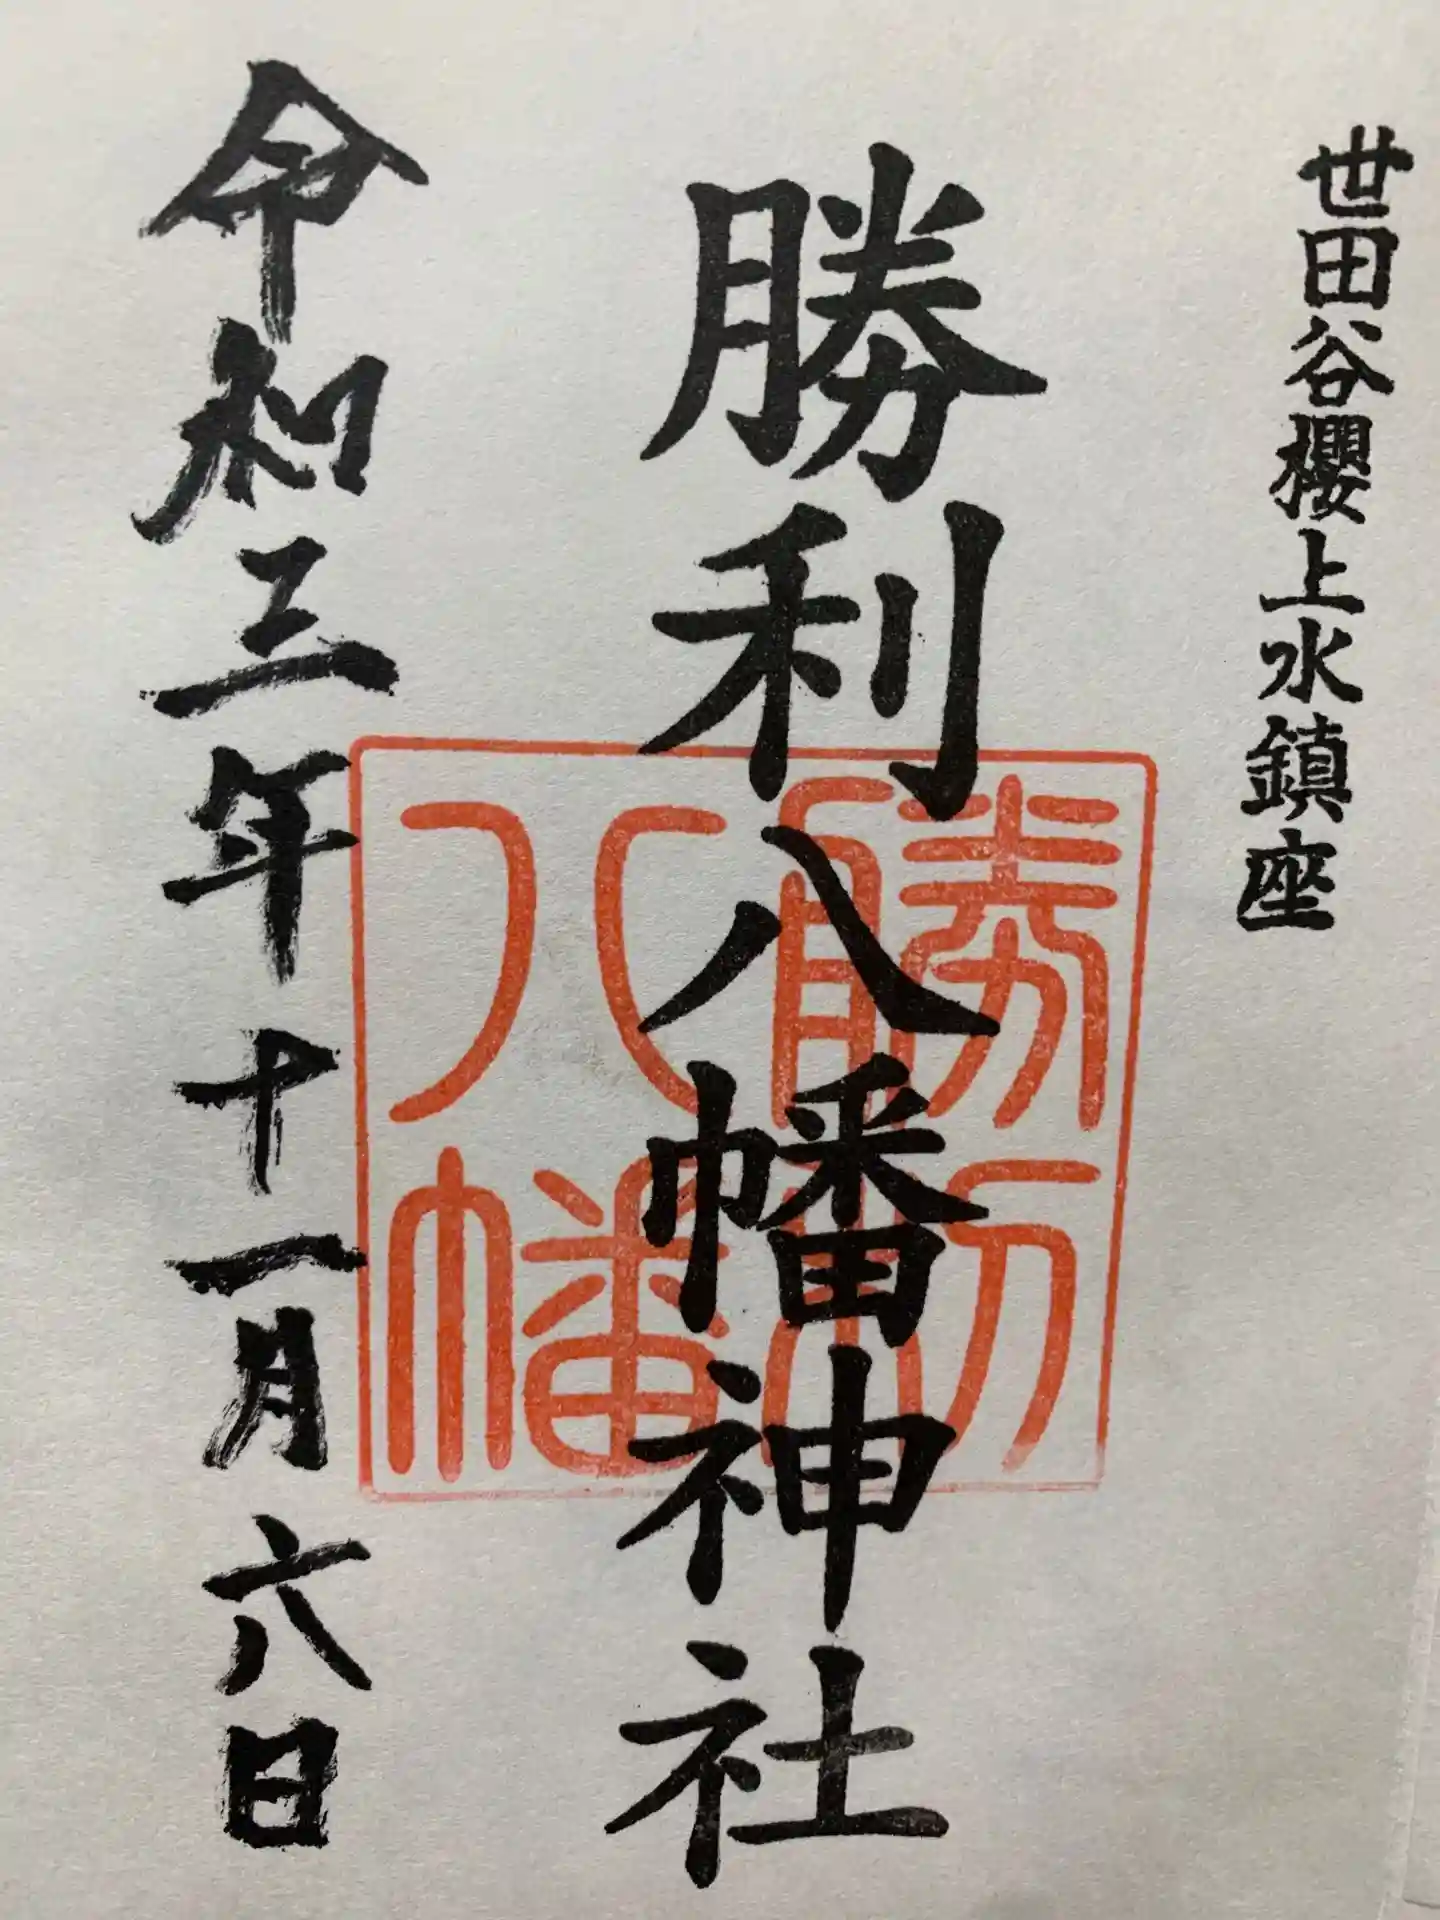 世田谷櫻上水鎮座
勝利八幡神社
勝利
八幡
令和三年十一月六日